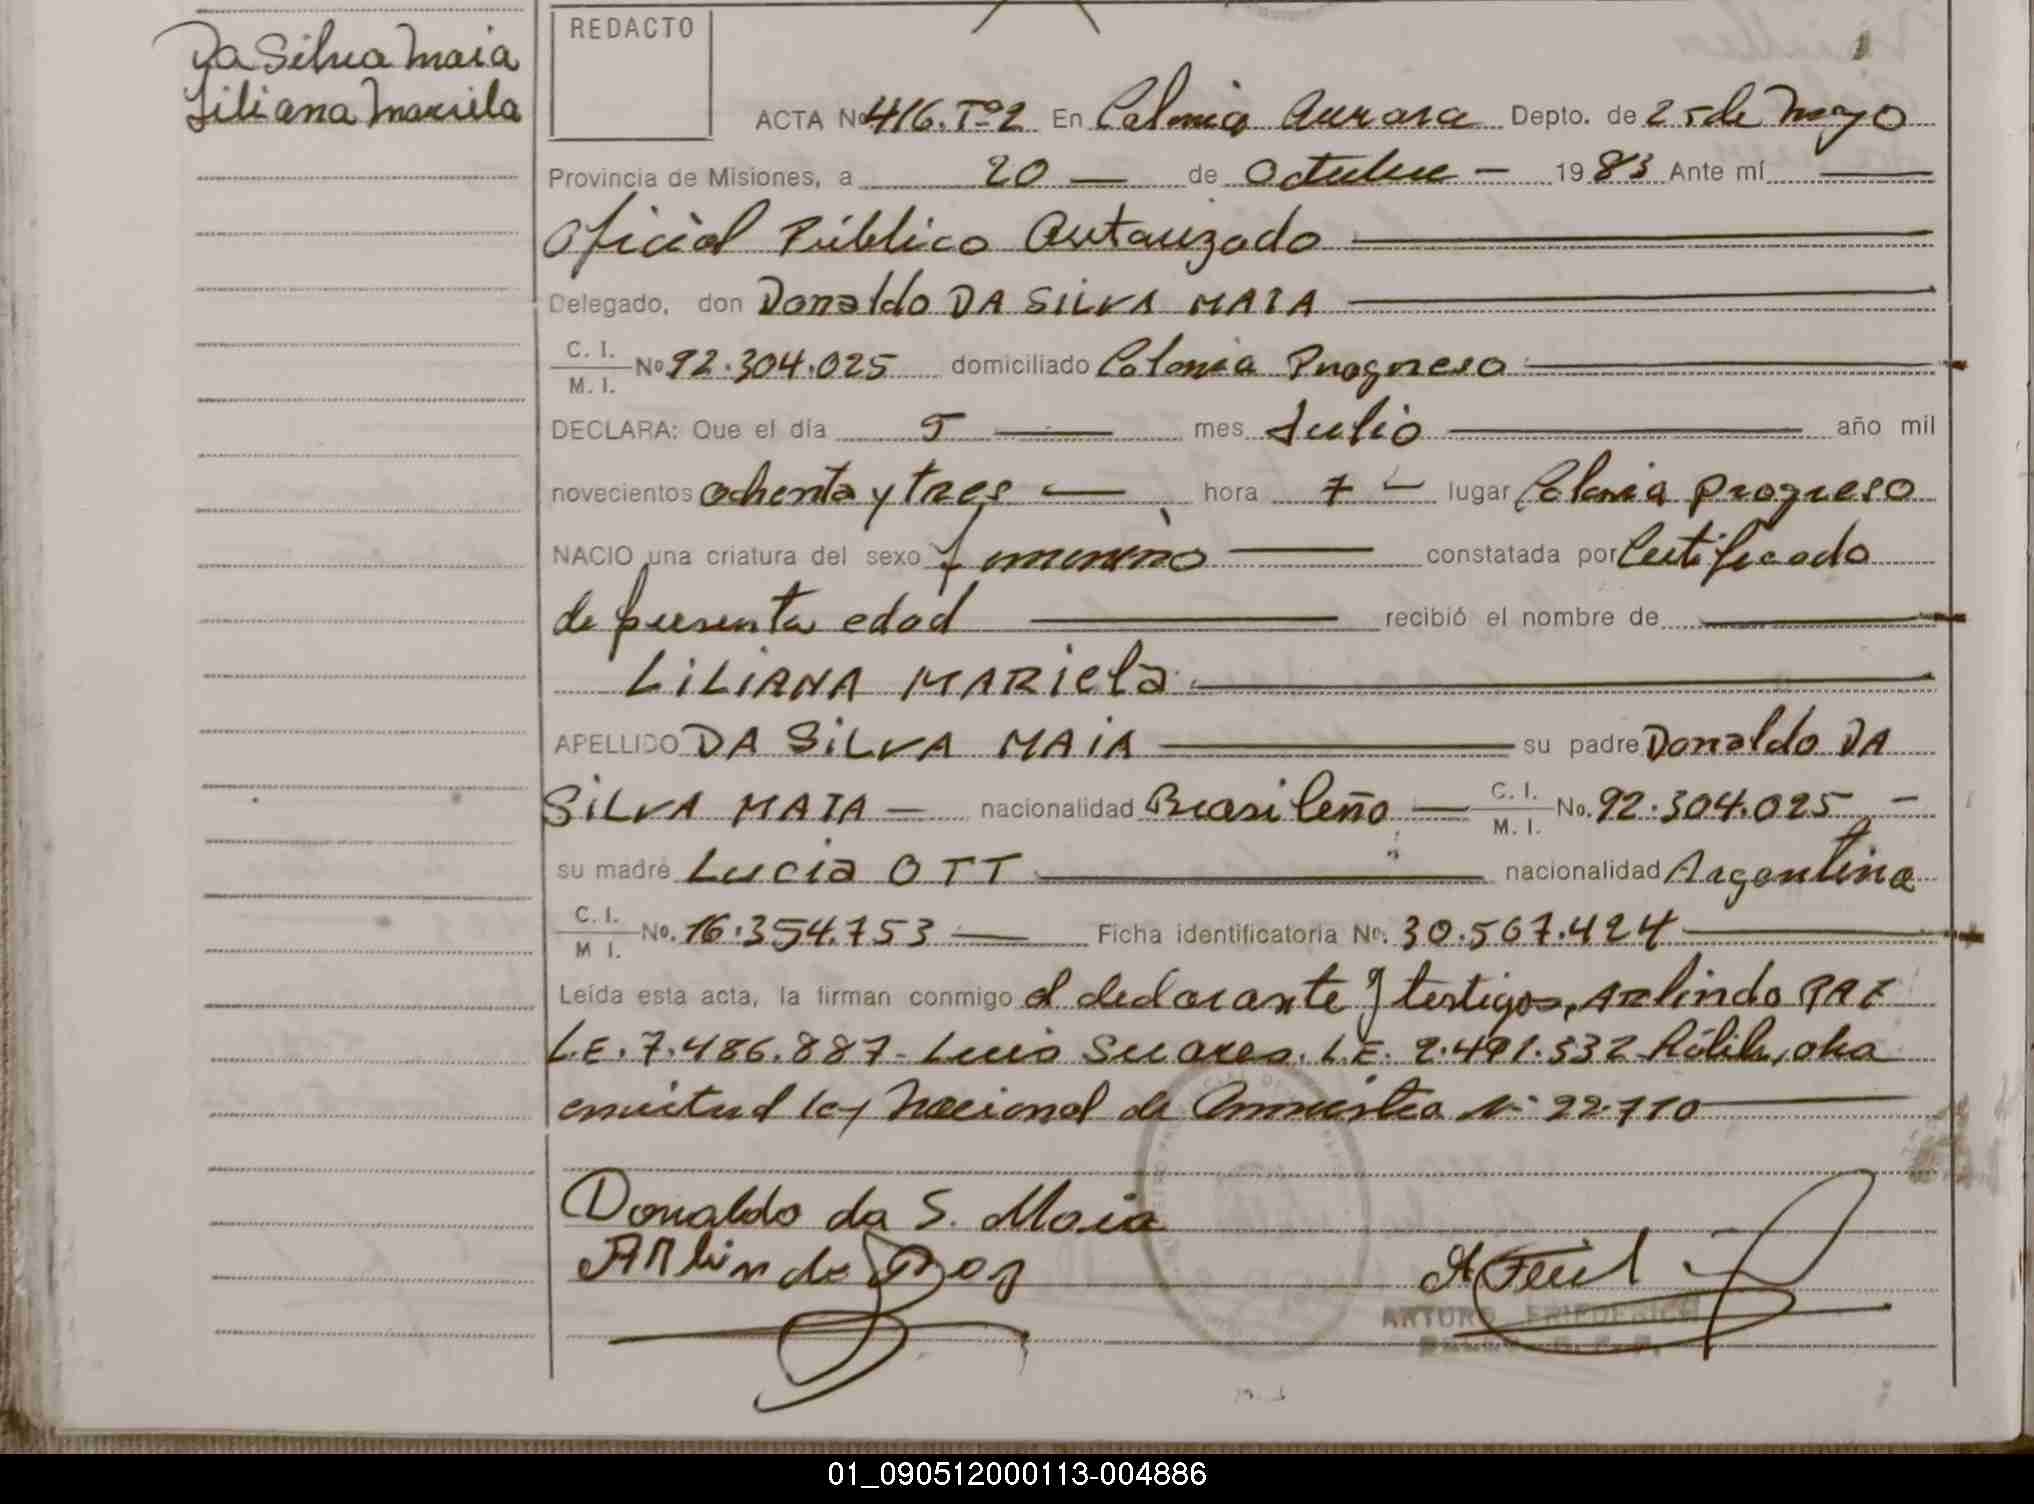 Da Silva Maia
Liliana Mariela
REDACTO
ACTA Nº 416. Tº2 En Colonia Aurora Depto. de 25 de Mayo
Provincia de Misiones, a 20 — de Octubre — 1983 Ante mí —
Oficial Público Autorizado —
Delegado, don Donaldo DA SILVA MAIA —
C. I. / M. I. Nº 92.304.025 domiciliado Colonia Progreso —
DECLARA: Que el día 5 — mes Julio — año mil
novecientos ochenta y tres — hora 7 — lugar Colonia Progreso
NACIO una criatura del sexo femenino — constatada por Certificado
de presunta edad — recibió el nombre de —
LILIANA MARIELA —
APELLIDO DA SILVA MAIA — su padre Donaldo DA
SILVA MAIA — nacionalidad Brasileño — C. I. / M. I. No. 92.304.025 —
su madre Lucia OTT — nacionalidad Argentina
C. I. / M I. No. 16.354.753 — Ficha identificatoria No. 30.567.424 —
Leída esta acta, la firman conmigo el declarante y testigos, Arlindo PAZ
L.E. 7.486.887 - Luis Suares. L.E. 2.491.532 hábiles,
ley Nacional de Amnistia Nº 22.710 —
Donaldo da S. Maia
Arlindo Paz
ARTURO FRIEDERICH
01_090512000113-004886